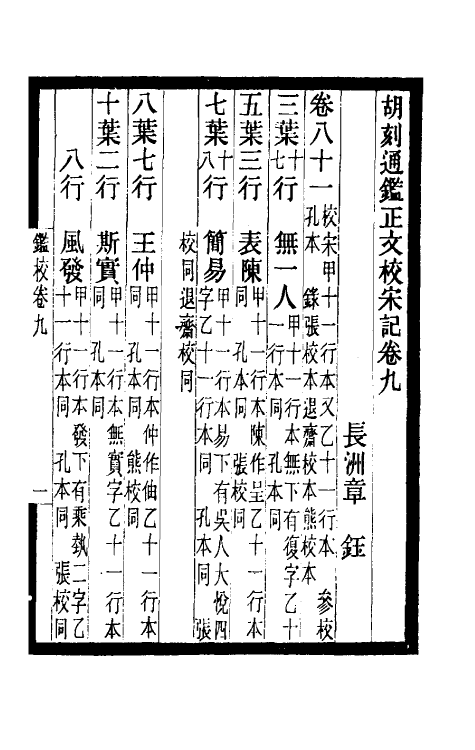 胡刻通鑑正文校宋記卷九
長洲章 鈺
卷八十一 校宋甲十一行本又乙十一行本 參校
孔本 錄張校本退齋校本熊校本
三葉十七行 無一人 甲十一行本無下有復字乙十
一行本同 孔本同
五葉三行 表陳 甲十一行本陳作呈乙十一行本
同 孔本同 張校同
七葉十八行 簡易 甲十一行本易下有吳人大悅四
字乙十一行本同 孔本同 張
校同退齋校同
八葉七行 王仲 甲十一行本仲作伷乙十一行本
同 孔本同 熊校同
十葉二行 斯實 甲十一行本無實字乙十一行本
同 孔本同
八行 風發 甲十一行本發下有乘執二字乙
十一行本同 孔本同 張校同
鑑校卷九
一